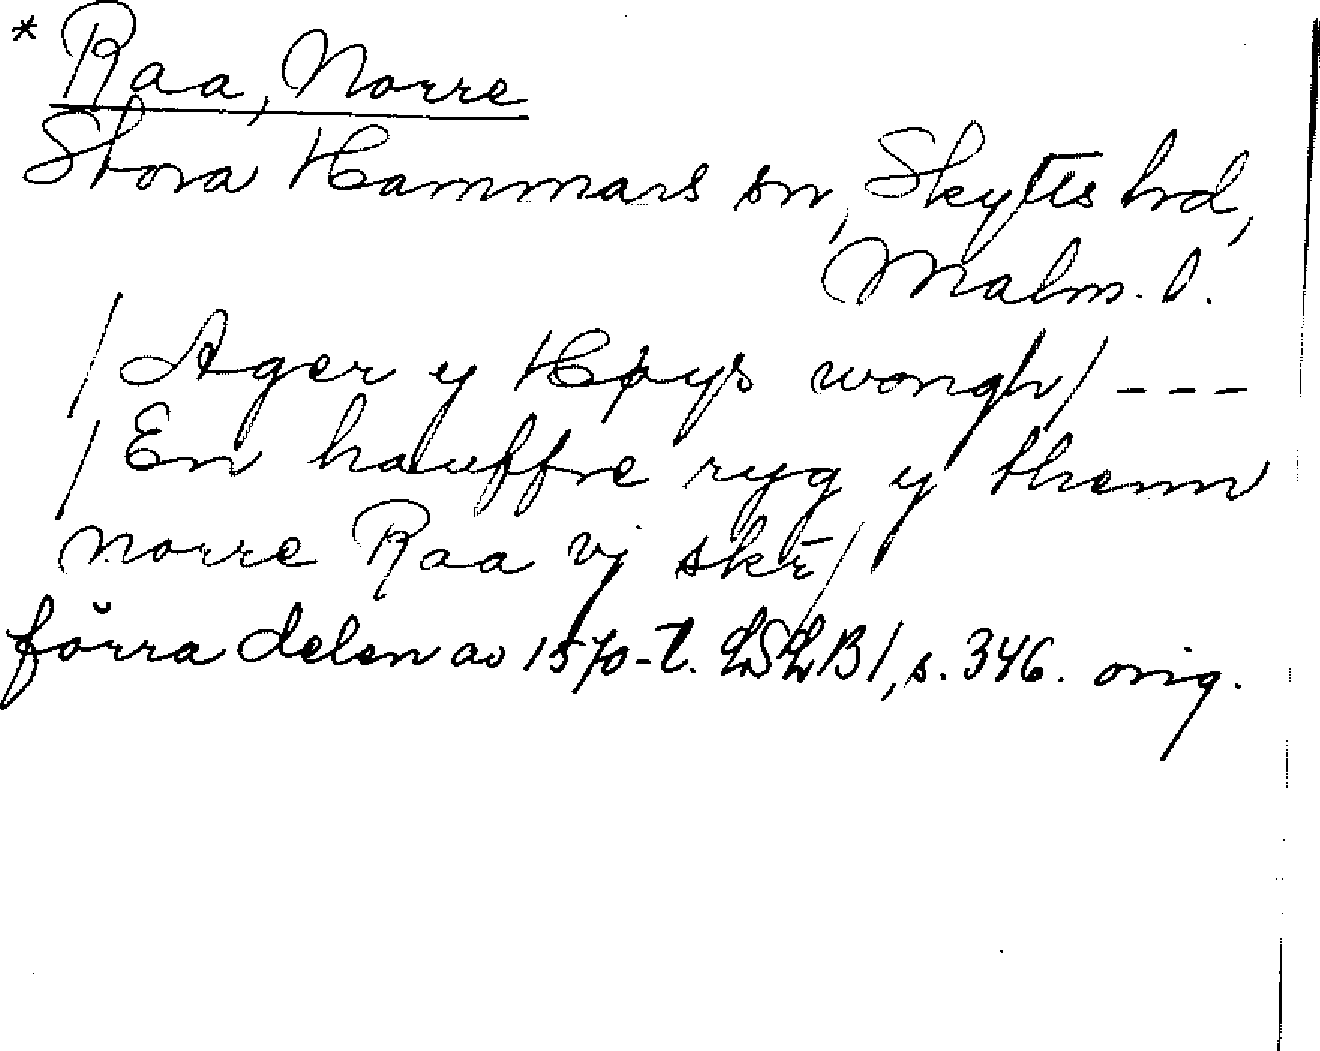 * Raa, Norre
Stora Hammars sn, Skytts hd,
Malm. l.
/Ager y Høys wongh/ ---
/En hauffre ryg y thenn
norre Raa vj skr̄/
förra delen av 1570-t. LSLB1, s. 346. orig.